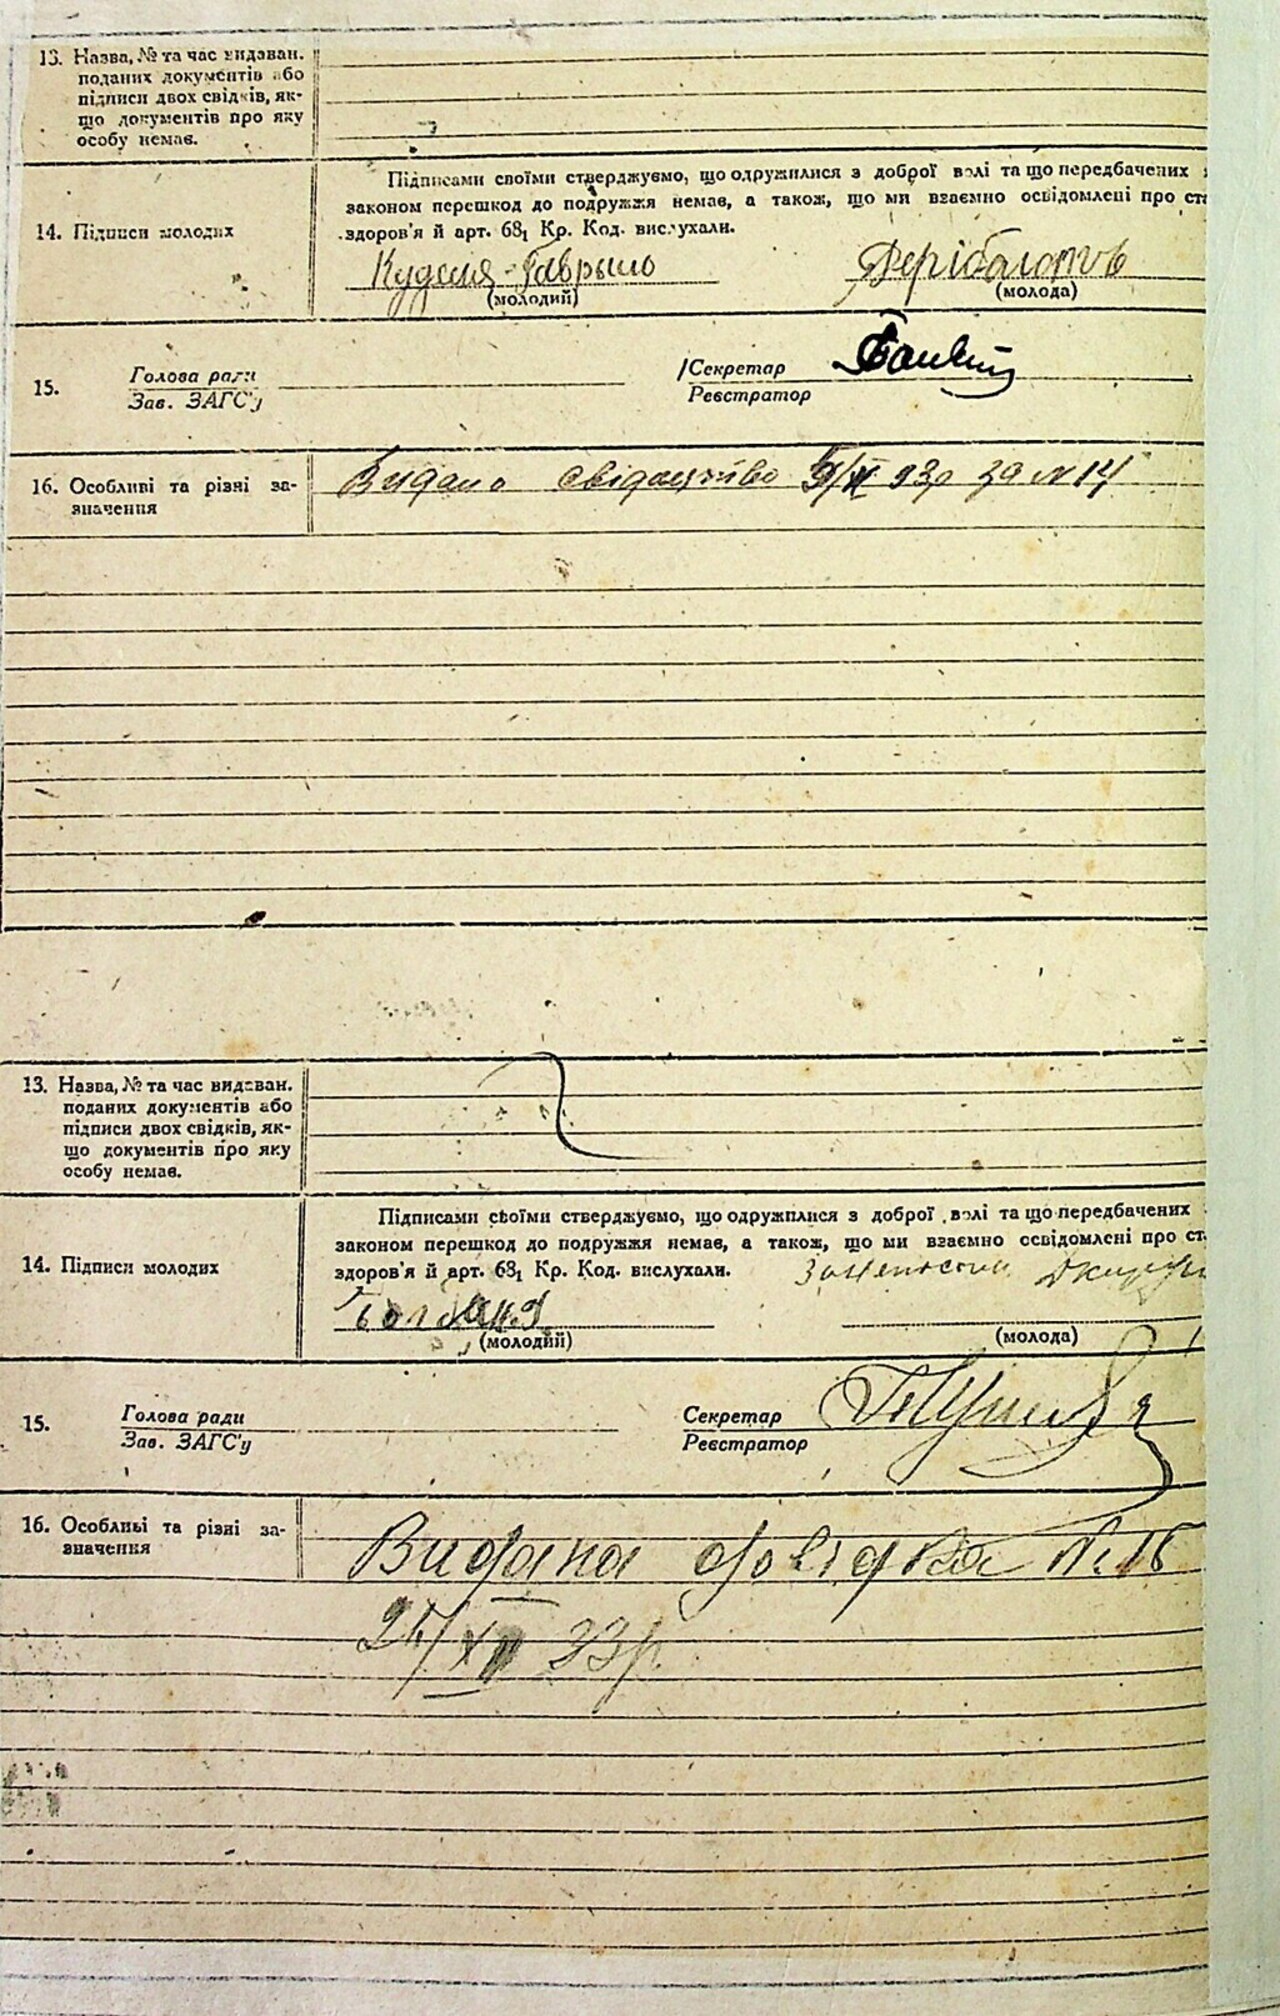 13. Назва, № та час видаван.
поданих документів або
підписи двох свідків, як-
що документів про яку
особу немає.
Підписами своїми стверджуємо, що одружилися з доброї волі та що передбачених
законом перешкод до подружжя немає, а також, що ми взаємно освідомлені про ст
14. Підписи молодих
здоров'я й арт. 68₁ Кр. Код. вислухали.
Гаврыло
(молодий) (молода)
15. Голова ради Секретар
Зав. ЗАГС'у Реєстратор
16. Особливі та різні за-
значення
Видано свідацтво 93р за №14
13. Назва, № та час видаван.
поданих документів або
підписи двох свідків, як-
що документів про яку
особу немає.
Підписами своїми стверджуємо, що одружилися з доброї волі та що передбачених
законом перешкод до подружжя немає, а також, що ми взаємно освідомлені про ст.
14. Підписи молодих
здоров'я й арт. 68₁ Кр. Код. вислухали.
(молодий) (молода)
15. Голова ради Секретар
Зав. ЗАГС'у Реєстратор
16. Особливі та різні за-
значення
Видана довідка №
33р.